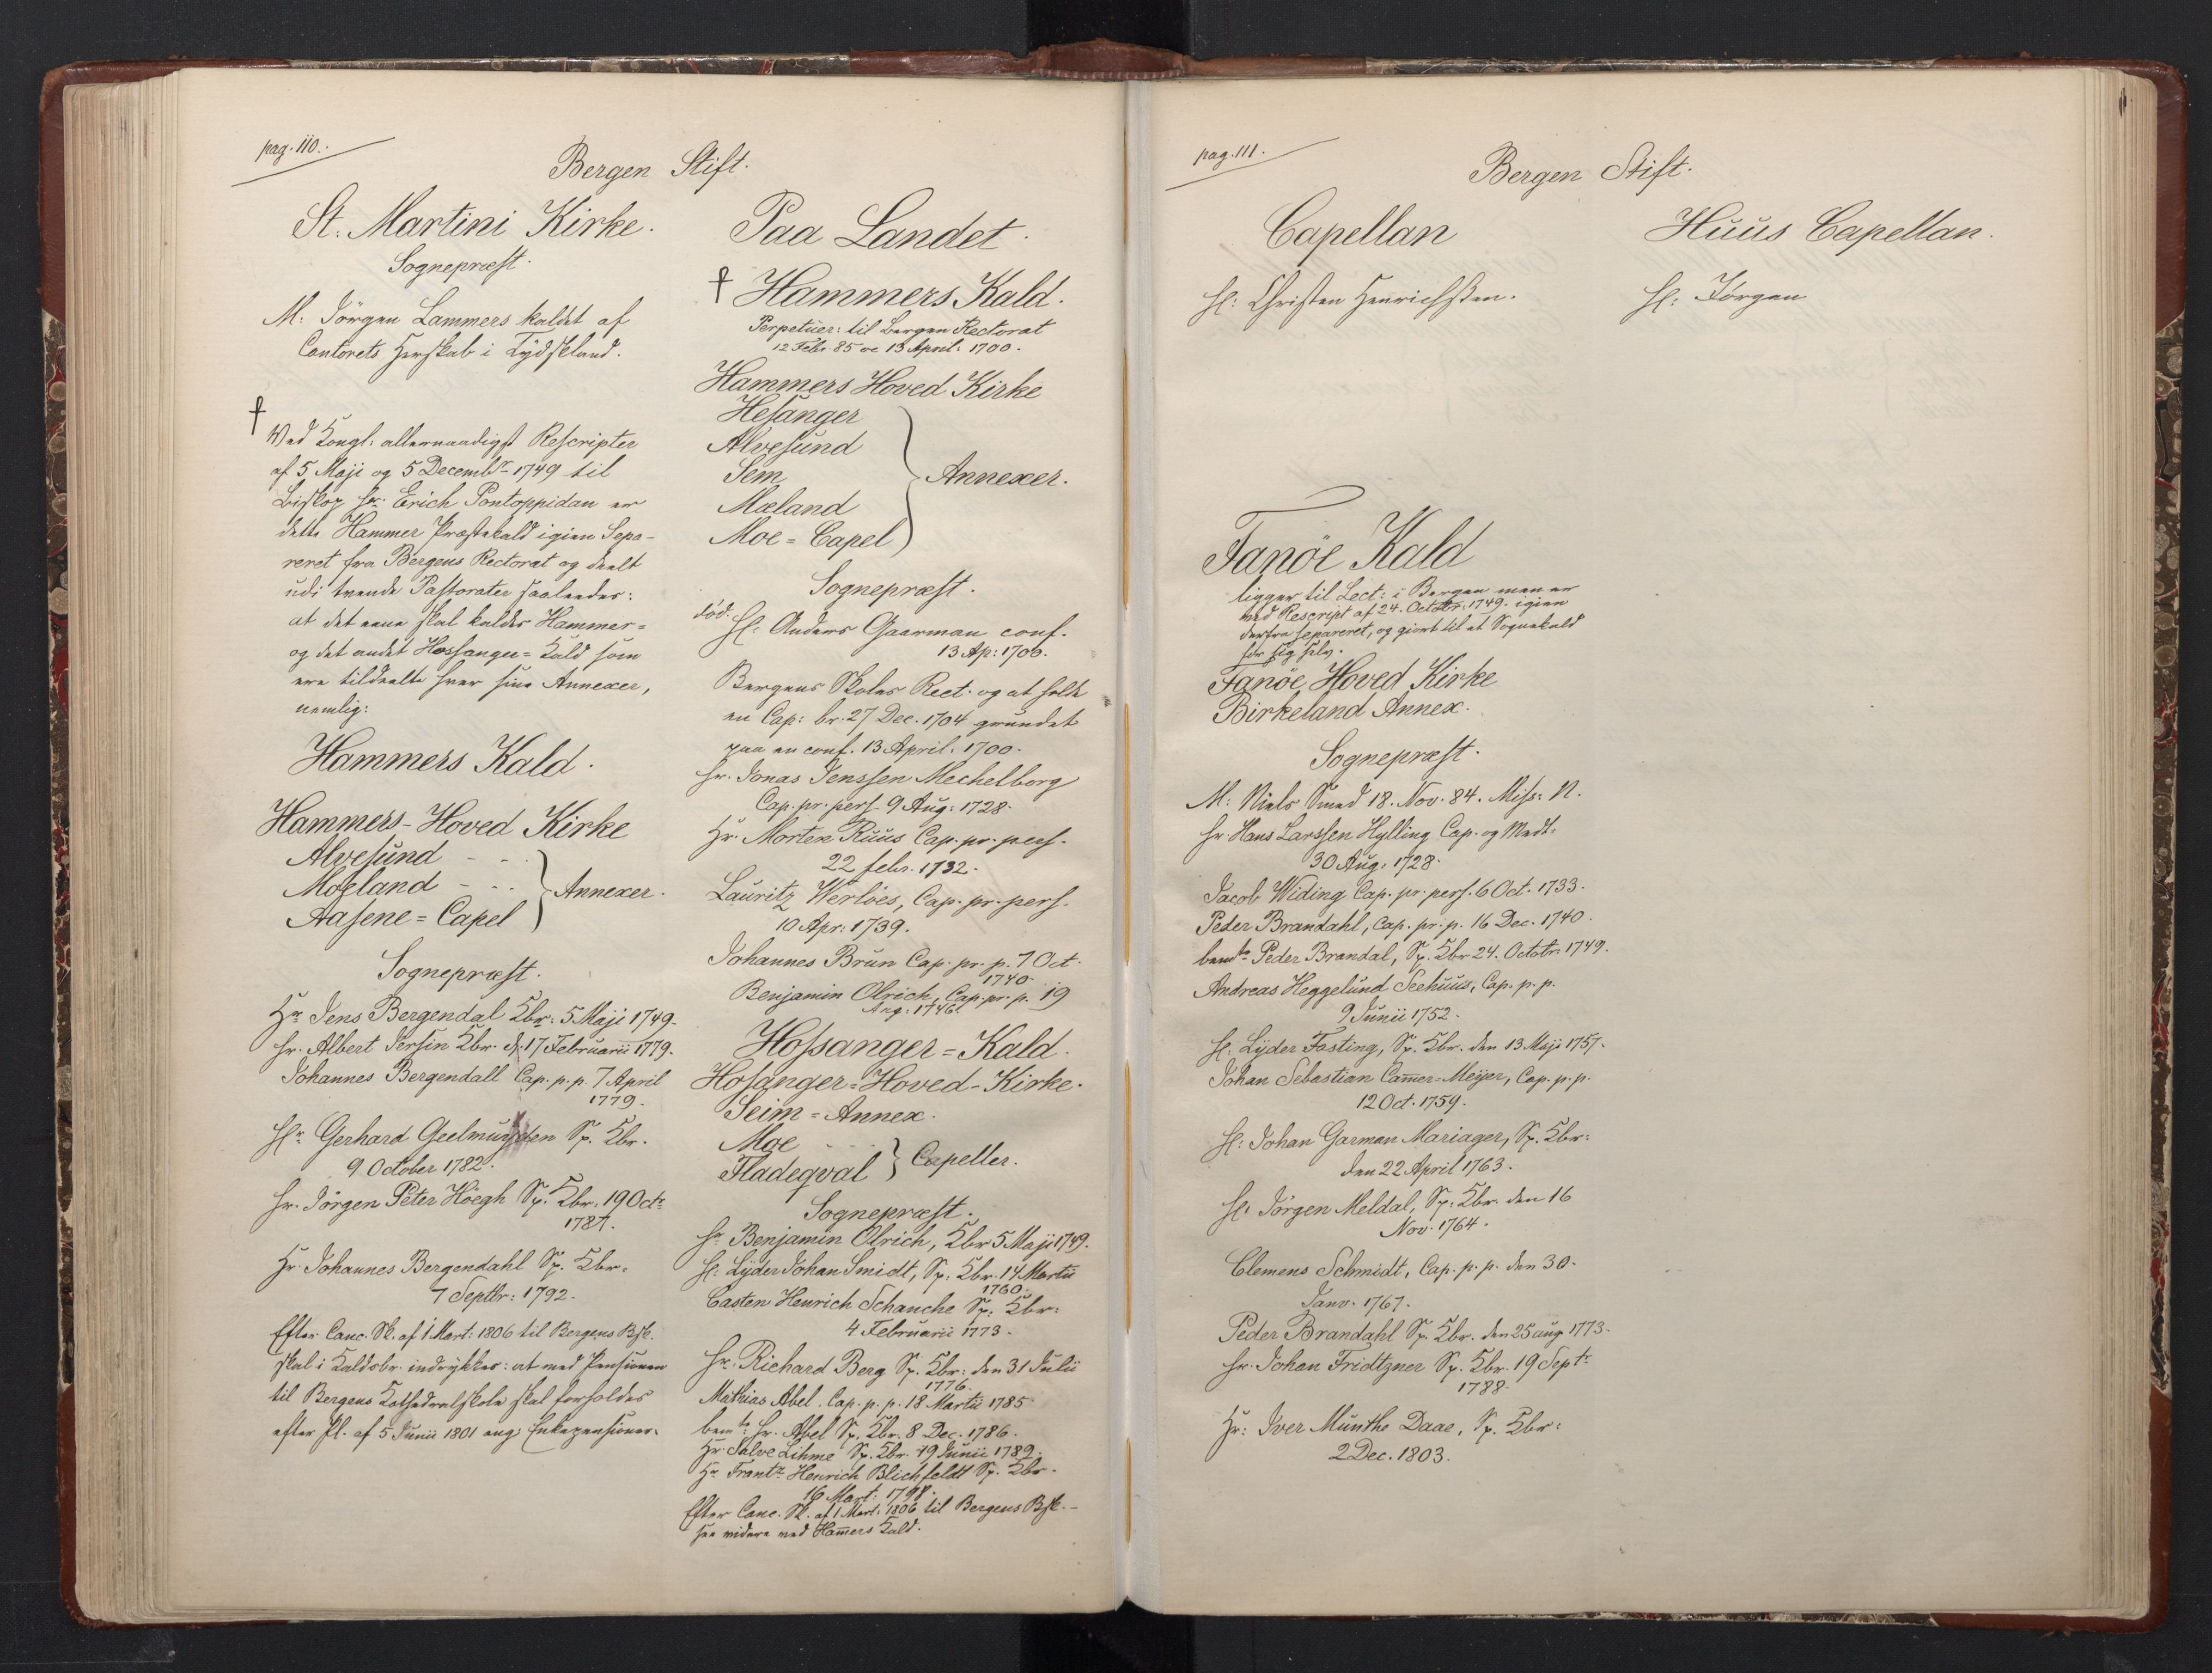 pag. 110.
Bergen Stift.
St. Martini Kirke.
Sognepræst.
M: Jörgen Lammers kaldet af
Contorets Herskab i Tydskland.
†
Ved Kongl: allernaadigst Rescripter
af 5 Maji og 5 Decembr 1749 til
Biskop Hr. Erich Pontoppidan er
dette Hammer Præstekald igien Sepa-
reret fra Bergens Rectorat og deelt
udi tvende Pastorater saaledes:
at det eene skal kaldes Hammer-
og det andet Hossanger-Kald som
ere tildeelte hver sine Annexer,
nemlig:
Hammers Kald.
Hammers-Hoved Kirke
Alvesund
Moeland
Aasene=Capel
Annexer.
Sognepræst.
Hr Jens Bergendal Kbr: 5 Maji 1749.
Hr. Albert Jersin Kbr. d. 17 Februarii 1779.
Johannes Bergendall Cap. p. p. 7 April
1779.
Hr Gerhard Geelmuyden Sp. Kbr.
9 October 1782.
Hr. Jörgen Peter Höegh Sp. Kbr. 19 Octr
1787.
Hr Johannes Bergendahl Sp. Kbr.
7 Septbr: 1792.
Efter Canc. Sk. af 1 Mart: 1806 til Bergens Bsk.
skal i Kaldsbr. indrykkes: at med Pensionen
til Bergens Kathedralskole skal forholdes
efter Pl. af 5 Junii 1801 ang: Enkepensioner.
Paa Landet.
† Hammers Kald.
Perpetuer: til Bergen Rectorat
12 Febr. 85 oc 13 April: 1700.
Hammers Hoved Kirke
Hesanger
Alvesund
Sem
Mæland
Moe=Capel
Annexer.
Sognepræst.
död. Hr: Anders Gaarman conf.
13 Ap: 1700.
Bergens Skoles Rect. og at holde
en Cap: br. 27 Dec. 1704 grundet
paa en conf. 13 April. 1700.
Hr. Jonas Jenssen Mechelborg
Cap. pr. pers. 9 Aug: 1728.
Hr. Morten Ruus Cap. pr. pers.
22 febr. 1732.
Lauritz Werlöes, Cap. pr. pers.
10 Apr: 1739.
Johannes Brun Cap. pr. p. 7 Oct.
1740.
Benjamin Olrich, Cap. pr. p. 19
Aug: 1746.
Hossanger=Kald.
Hosanger=Hoved-Kirke.
Seim=Annex.
Moe
Fladeqval
Capeller.
Sognepræst.
Hr Benjamin Olrich, Kbr 5 Maji 1749.
Hr: Lyder Johan Smidt, Sp: Kbr. 14 Martii
1760.
Casten Henrich Schanche Sp: Kbr:
4 Februarii 1773.
Hr. Richard Berg Sp. Kbr: den 31 Julii
1776.
Mathias Abel. Cap. p. p. 18 Martii 1785
bemte Hr. Abel Sp. Kbr. 8 Dec. 1786.
Hr Salve Lihme Sp. Kbr. 19 Junii 1789.
Hr Frantz Henrich Blichfeldt Sp. Kbr.
16 Mart: 1798.
Efter Canc. Sk. af 1 Mart: 1806 til Bergens Bsk.-
see videre ved Hamers Kald.
pag. 111.
Bergen Stift.
Capellan
Hr: Christen Henrichssen.
Huus Capellan.
Hr: Jörgen
Fanöe Kald
ligger til Lect: i Bergen men er
ved Rescript af 24. Octobr: 1749. igien
derfra separeret, og giort til et Sognekald
for sig selv.
Fanöe Hoved Kirke
Birkeland Annex.
Sognepræst.
M: Niels Smed 18. Nov. 84. Miss: N.
Hr. Hans Larssen Hylling Cap. og Medt:
30 Aug: 1728.
Jacob Widing Cap. pr. pers. 6 Oct. 1733.
Peder Brandahl, Cap. pr. p. 16 Dec. 1740.
bemte Peder Brandal, Sp. Kbr 24. Octobr. 1749.
Andreas Heggelund Seehuus, Cap. p. p.
9 Junii 1752.
Hr: Lyder Fasting, Sp. Kbr. den 13 Maji 1757.
Johan Sebastian Camer-Meijer, Cap. p. p.
12 Oct. 1759.
Hr: Johan Garman Mariager, Sp. Kbr:
den 22 April 1763.
Hr: Jörgen Meldal, Sp. Kbr: den 16
Nov. 1764.
Clemens Schmidt, Cap. p. p. den 30.
Janv. 1767.
Peder Brandahl Sp. Kbr. den 25 aug 1773.
Hr. Johan Fridtzner Sp. Kbr. 19 Septr
1788.
Hr: Iver Munthe Daae, Sp. Kbr:
2 Dec. 1803.